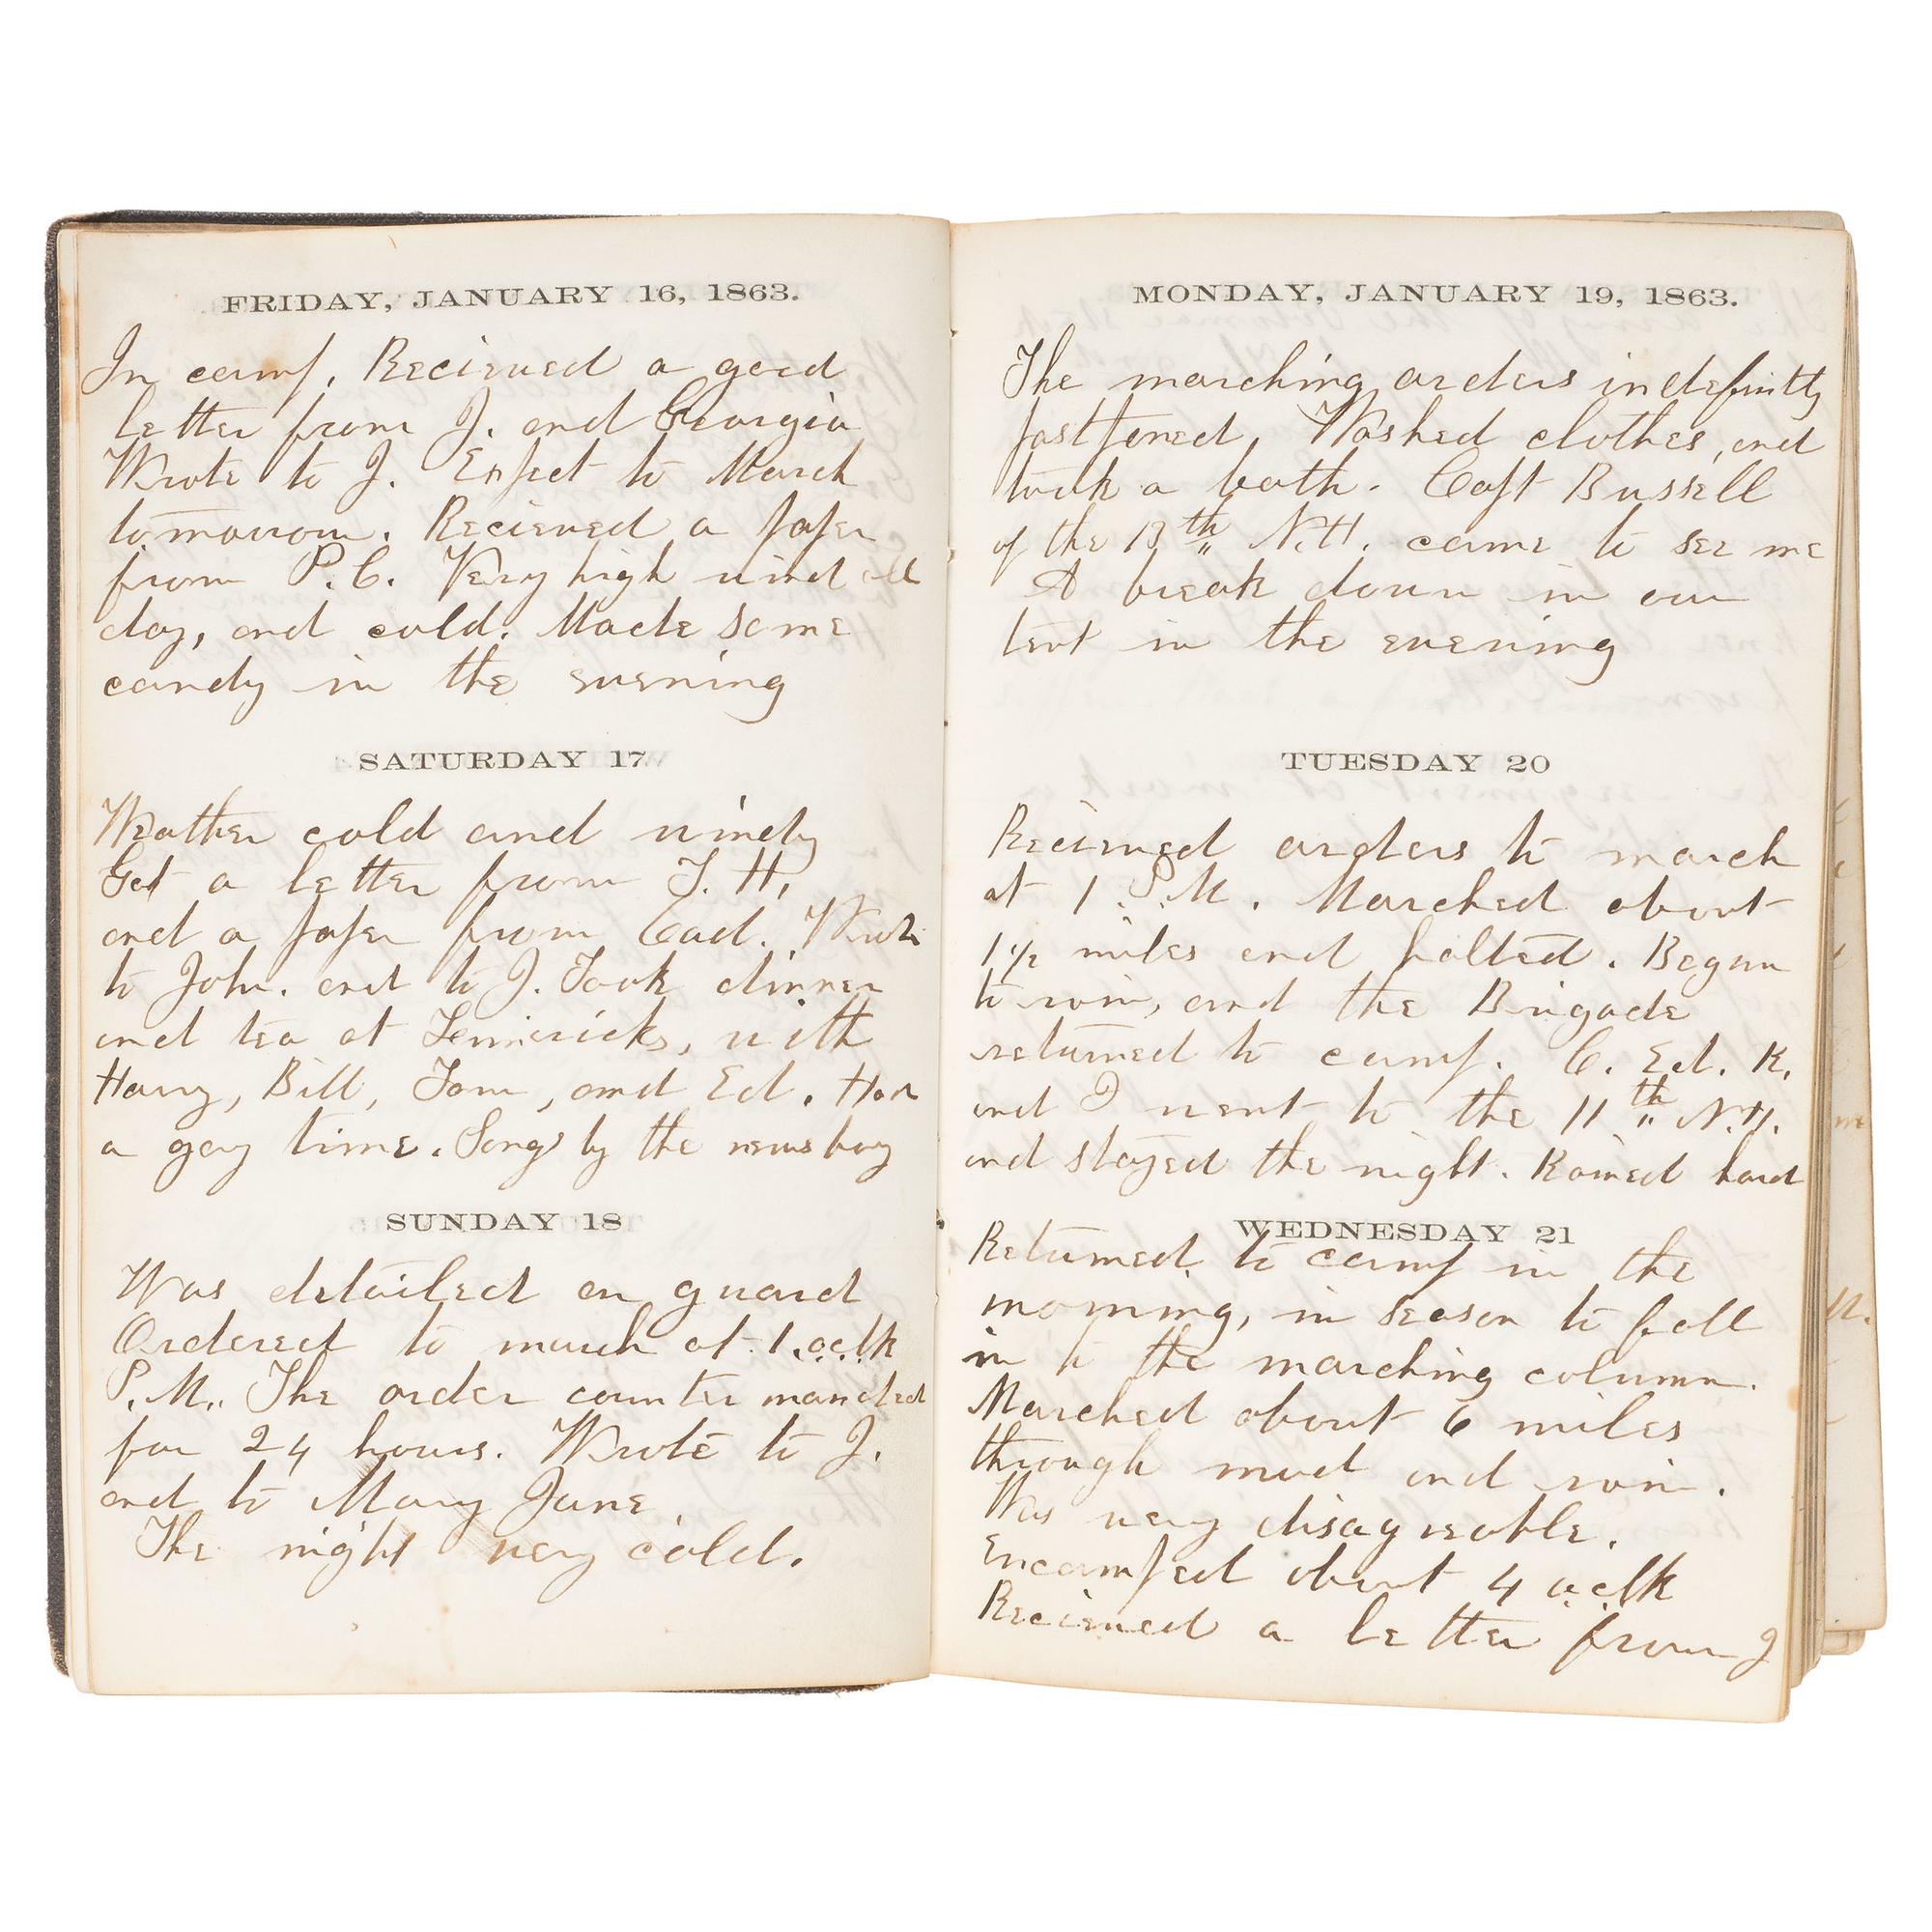 FRIDAY, JANUARY 16, 1863.
In camp. Recieved a good
letter from J. and Georgia
Wrote to J. Expect to March
tomorrow. Recieved a paper
from P.C. Very high wind all
day, and cold. Made some
candy in the evening
SATURDAY 17
Weather cold and windy
Got a letter from J. H.
and a paper from Cad. Wrote
to John. and to J. Took dinner
and tea at with
Harry, Bill, Tom, and Ed. Had
a gay time. Songs by the news boy
SUNDAY 18
Was detailed on guard
Ordered to march at 1. oclk
P.M.. The order counter manded
for 24 hours. Wrote to J.
and to Mary Jane.
The night very cold.
MONDAY, JANUARY 19, 1863.
The marching orders indefinitly
postponed, Washed clothes, and
took a bath. Capt Bussell
of the 13th N.H. came to see me
A break down in our
tent in the evening
TUESDAY 20
Recieved orders to march
at 1 P.M. Marched about
1 1/2 miles and halted. Began
to rain, and the Brigade
returned to camp. C. Ed. K.
and I went to the 11th N.H.
and stayed the night. Rained hard
WEDNESDAY 21
Returned to camp in the
morning, in season to fall
in to the marching column.
Marched about 6 miles
through mud and rain.
Was very disagreable.
Encamped about 4 oclk
Recieved a letter from J